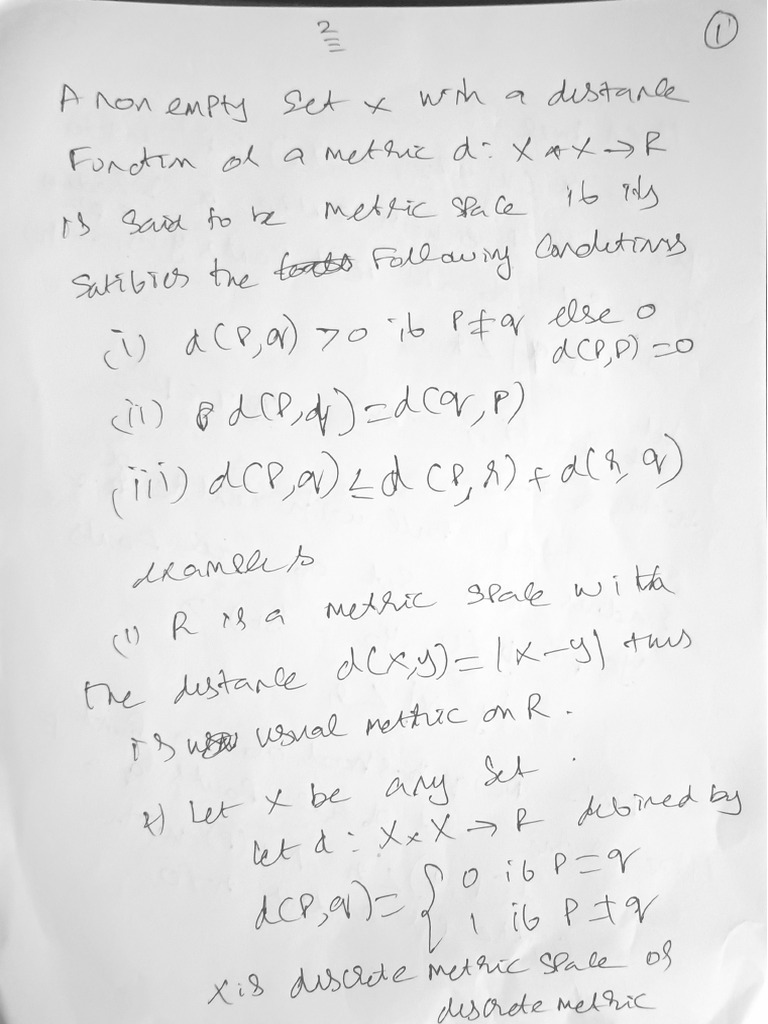 2
1
A non empty set x with a distance
Function or a metric d: X × X → R
is said to be metric space if its
satisfies the Following Conditions
(i) d(p,q) > 0 if p ≠ q else 0
d(p,p) = 0
(ii) d(p,q) = d(q,p)
(iii) d(p,q) ≤ d(p,r) + d(r,q)
examples
(1) R is a metric space with
the distance d(x,y) = |x-y| this
is usual metric on R.
2) Let x be any set.
let d: X × X → R defined by
d(p,q) = { 0 if p = q
1 if p ≠ q
x is discrete metric space or
discrete metric